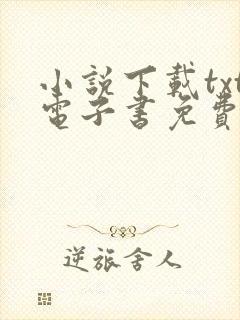 小說下載txt
電子書免費
逆旅舍人